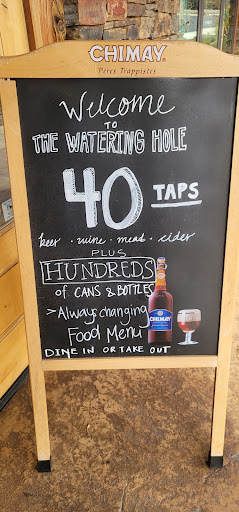 CHIMAY
Peres Trappistes
Welcome
TO
THE WATERING HOLE
40 TAPS
beer · wine · mead · cider
PLUS
HUNDREDS
of CANS & BOTTLES
> Always changing
Food Menu
DINE IN OR TAKE OUT
CHIMAY